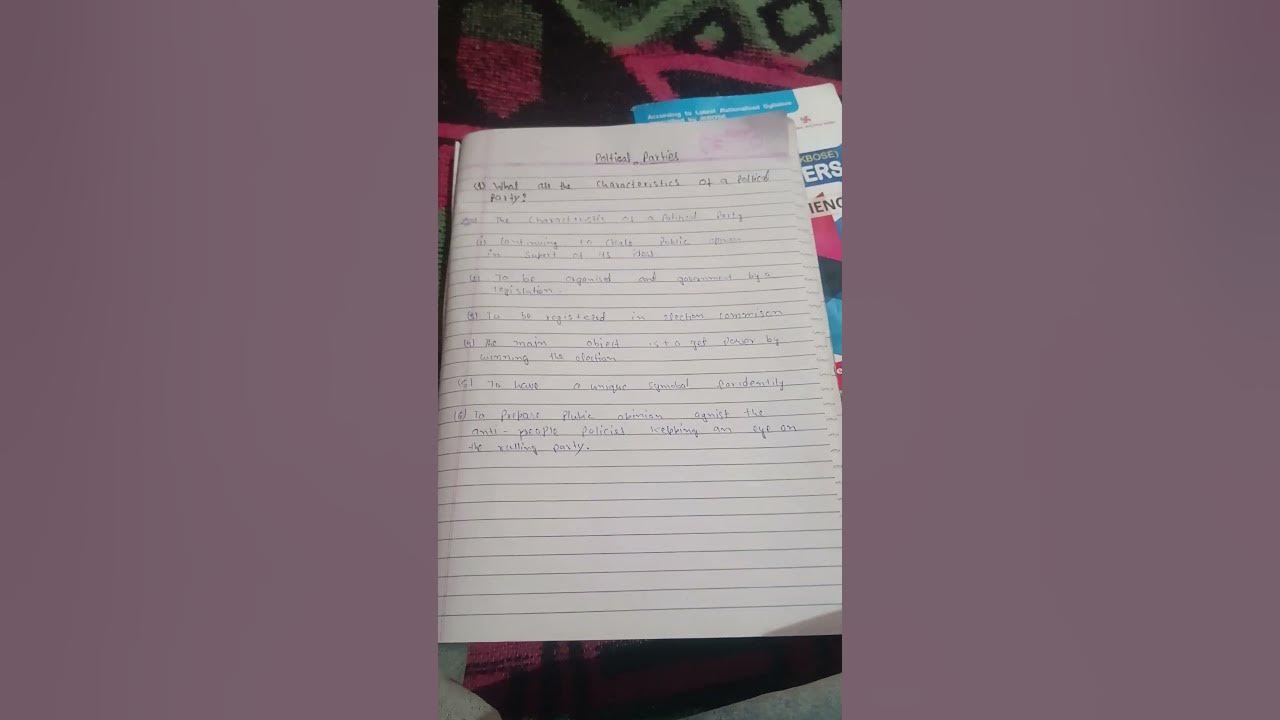 According to Latest Rationalised Syllabus
KBOSE)
ERS
IENC
Poltical Parties
(1) What are the Characteristics of a Poltical
Party?
The Characteristic of a Political Party
(1) Continuing to Create Public opinion
in Suport of its ideas
(2) To be organised and government by a
legislation.
(3) To be registered in election commison
(4) the main object is to get Power by
winning the election
(5) To have a unique symobal for identity
(6) To Prepare Plubic obinion agnist the
anti-people policies kepping an eye on
the rulling party.